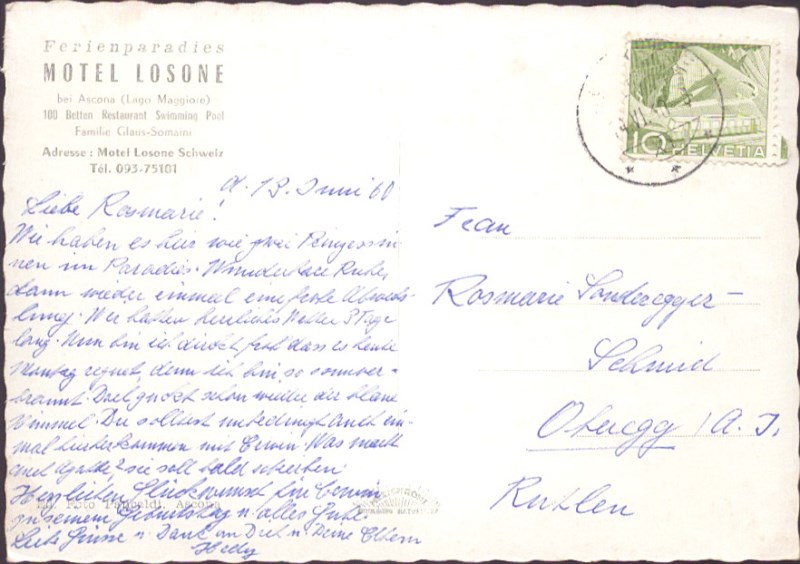 Ferienparadies
MOTEL LOSONE
bei Ascona (Lago Maggiore)
100 Betten Restaurant Swimming Pool
Familie Glaus-Somaini
Adresse : Motel Losone Schweiz
Tél. 093-75101
10 HELVETIA
d. 13. Juni 60
Liebe Rosmarie!
Wir haben es hier wie zwei Prinzessin-
nen im Paradies. Wunderbare Ruhe,
dann wieder einmal eine frohe Abwechs-
lung. Wir hatten herrliches Wetter 3 Tage
lang. Nun bin ich direkt froh dass es heute
Montag regnet, denn ich bin so sonnver-
brannt. Doch guckt schon wieder der blaue
Himmel. Du solltest unbedingt auch ein-
mal hierherkommen mit Erwin. Was macht
auch Agathe? sie soll bald schreiben.
Herzlichen Glückwunsch für
zu seinem Geburtstag u. alles Gute.
Liebe Grüsse u. Dank an Dich u. Deine Eltern
Hedy
Foto Pancaldi, Ascona
Frau
Rosmarie Sonderegger-
Schmid
Oberegg / A. I.
Rutlen